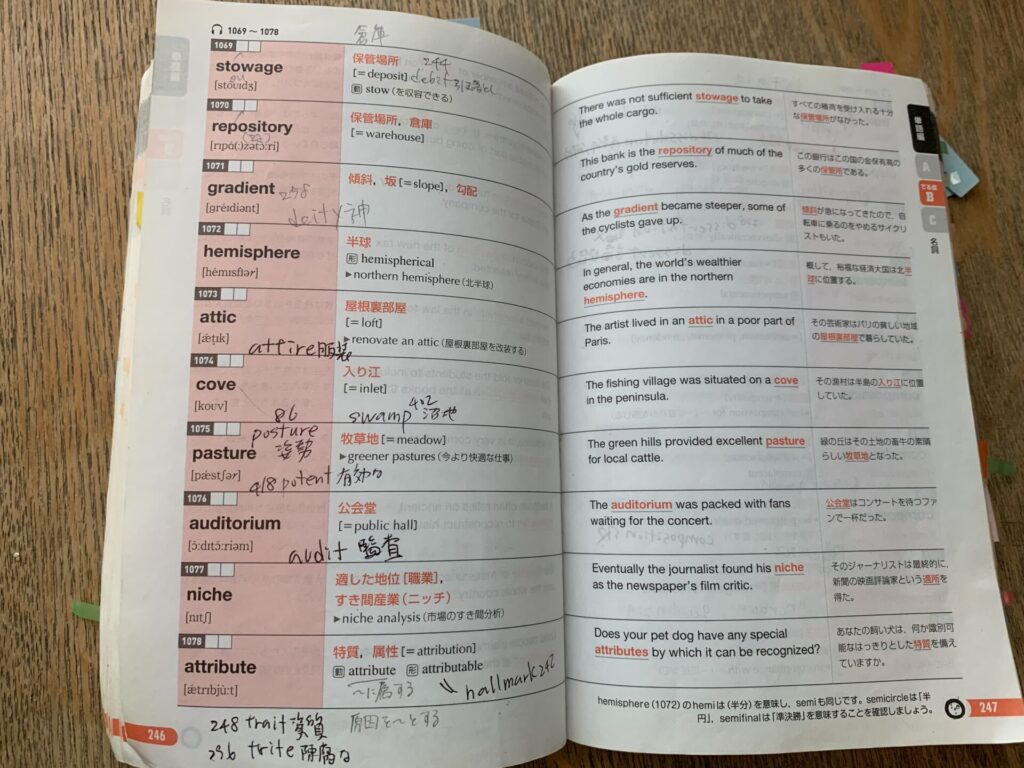 1069〜1078
倉庫
1069
stowage
[stóuɪdʒ]
ou
保管場所
244
[= deposit] debit 引き落とし
動 stow(を収容できる)
There was not sufficient stowage to take
the whole cargo.
すべての積荷を受け入れる十分
な保管場所がなかった。
1070
repository
[rɪpá(ː)zətɔ̀ːri]
保管場所, 倉庫
[= warehouse]
This bank is the repository of much of the
country's gold reserves.
この銀行はこの国の金保有高の
多くの保管所である。
1071
gradient
[gréɪdiənt]
258
deity 神
傾斜, 坂 [= slope], 勾配
As the gradient became steeper, some of
the cyclists gave up.
傾斜が急になってきたので、自
転車に乗るのをやめるサイクリ
ストもいた。
1072
hemisphere
[hémɪsfɪər]
半球
形 hemispherical
▶northern hemisphere(北半球)
In general, the world's wealthier
economies are in the northern
hemisphere.
概して、裕福な経済大国は北半
球に位置する。
1073
attic
[ǽṭɪk]
attire 服装
屋根裏部屋
[= loft]
▶renovate an attic(屋根裏部屋を改装する)
The artist lived in an attic in a poor part of
Paris.
その芸術家はパリの貧しい地域
の屋根裏部屋で暮らしていた。
1074
cove
[koʊv]
入り江
[= inlet]
swamp 402 沼地
The fishing village was situated on a cove
in the peninsula.
その漁村は半島の入り江に位置
していた。
86
posture
姿勢
1075
pasture
[pǽstʃər]
418 potent 有効な
牧草地 [= meadow]
▶greener pastures(今より快適な仕事)
The green hills provided excellent pasture
for local cattle.
緑の丘はその土地の畜牛の素晴
らしい牧草地となった。
1076
auditorium
[ɔ̀ːdɪtɔ́ːriəm]
audit 監査
公会堂
[= public hall]
The auditorium was packed with fans
waiting for the concert.
公会堂はコンサートを待つファ
ンで一杯だった。
1077
niche
[nɪtʃ]
適した地位[職業],
すき間産業(ニッチ)
▶niche analysis(市場のすき間分析)
Eventually the journalist found his niche
as the newspaper's film critic.
そのジャーナリストは最終的に、
新聞の映画評論家という適所を
得た。
1078
attribute
[ǽtrɪbjùːt]
特質, 属性 [= attribution]
動 attribute 形 attributable
〜に属する
hallmark 242
Does your pet dog have any special
attributes by which it can be recognized?
あなたの飼い犬は、何か識別可
能なはっきりとした特質を備え
ていますか。
248 trait 資質
原因を〜とする
236 trite 陳腐な
hemisphere (1072) のhemiは〈半分〉を意味し、semiも同じです。semicircleは「半
円」、semifinalは「準決勝」を意味することを確認しましょう。
246
247
単語編
A
でる度
B
C
名詞